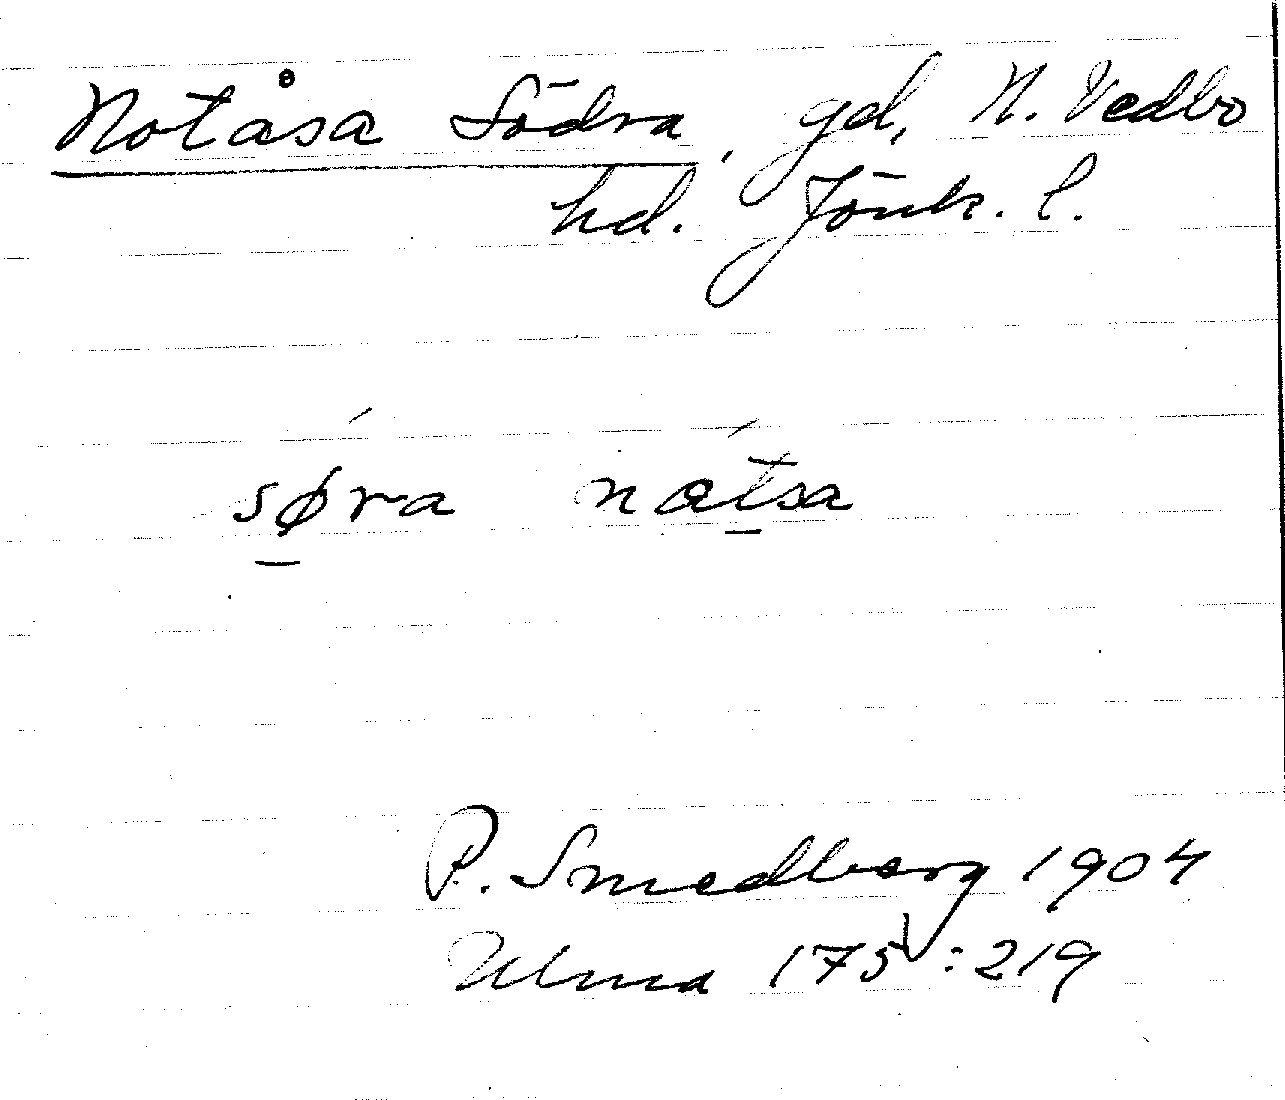 Notåsa Södra, gd, N. Vedbo
hd. Jönk. l.
søra natsa
P. Smedberg 1904
Ulma 175:219